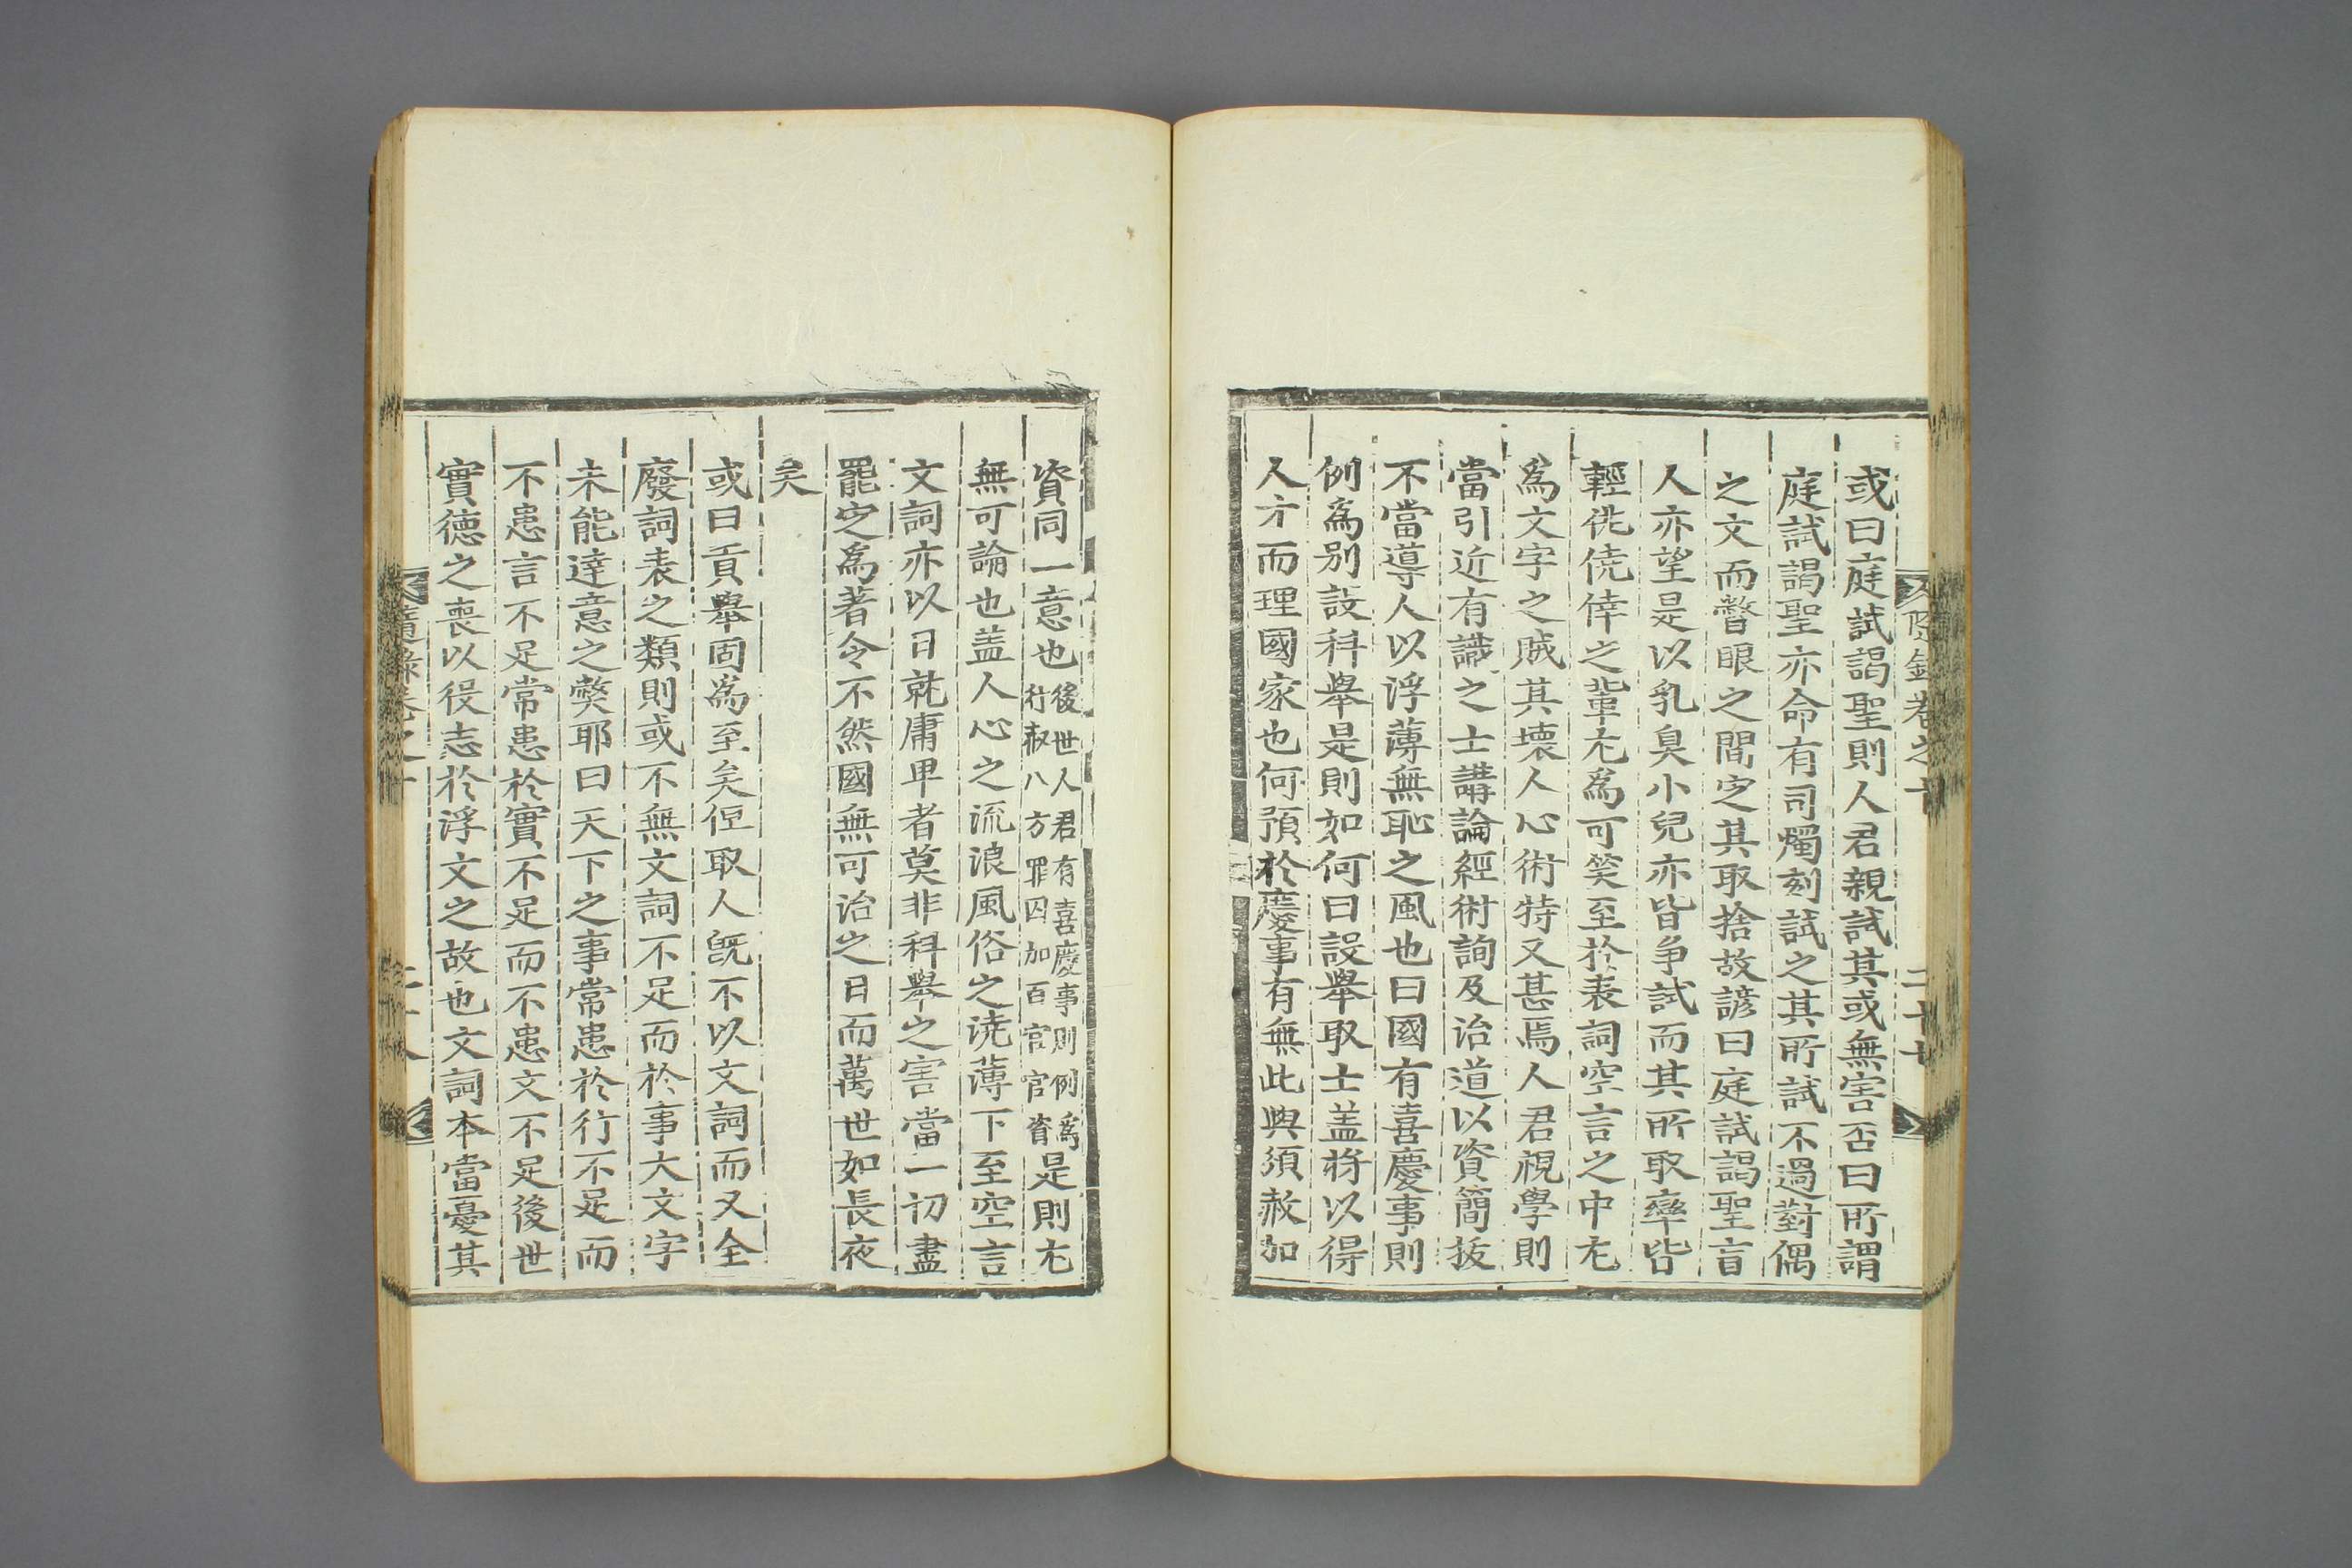 或曰庭試謁聖則人君親試其或無害否曰所謂
庭試謁聖亦命有司燭刻試之其所試不過對偶
之文而瞥眼之間定其取捨故諺曰庭試謁聖盲
人亦望是以乳臭小兒亦皆争試而其所取率皆
輕佻僥倖之輩尤爲可笑至於表詞空言之中尤
爲文字之賊其壞人心術特又甚焉人君視學則
當引近有識之士講論經術詢及治道以資簡拔
不當導人以浮薄無恥之風也曰國有喜慶事則
例爲別設科擧是則如何曰設擧取士盖將以得
人才而理國家也何預於慶事有無此與須赦加
隨錄卷之十
二十七
資同一意也後世人君有喜慶事則例爲
行赦八方罪囚加百官官資是則尤
無可論也盖人心之流浪風俗之澆薄下至空言
文詞亦以日就庸卑者莫非科擧之害當一切盡
罷定爲著令不然國無可治之日而萬世如長夜
矣
或曰貢擧固爲至矣但取人旣不以文詞而又全
廢詞表之類則或不無文詞不足而於事大文字
未能達意之獘耶曰天下之事常患於行不足而
不患言不足常患於實不足而不患文不足後世
實德之喪以役志於浮文之故也文詞本當憂其
隨錄卷之十
二十八